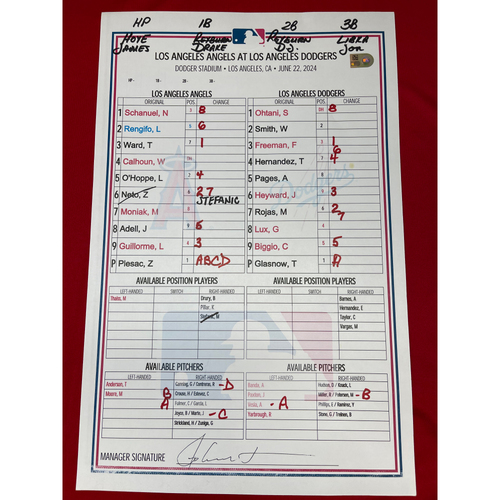 HP 1B 2B 3B
HOYE REYBURN REYBURN LIBKA
JAMES DRAKE D.J. JON
LOS ANGELES ANGELS AT LOS ANGELES DODGERS
DODGER STADIUM • LOS ANGELES, CA • JUNE 22, 2024
HP - 1B - 2B - 3B -
LOS ANGELES ANGELS LOS ANGELES DODGERS
ORIGINAL POS. CHANGE ORIGINAL POS. CHANGE
1 Schanuel, N 3 B 1 Ohtani, S DH B
2 Rengifo, L 5 6 2 Smith, W 2
3 Ward, T 7 1 3 Freeman, F 3 1 6
4 Calhoun, W DH 4 Hernandez, T 7 4
5 O'Hoppe, L 2 4 5 Pages, A 8
6 Neto, Z 6 27 STEFANIC 6 Heyward, J 9 3
7 Moniak, M 8 7 Rojas, M 6 2 7
8 Adell, J 9 5 8 Lux, G 4
9 Guillorme, L 4 3 9 Biggio, C 5 5
P Plesac, Z 1 ABCD P Glasnow, T 1 A
AVAILABLE POSITION PLAYERS AVAILABLE POSITION PLAYERS
LEFT-HANDED SWITCH RIGHT-HANDED LEFT-HANDED SWITCH RIGHT-HANDED
Thaiss, M Drury, B Barnes, A
Pillar, K Hernandez, E
Stefanic, M Taylor, C
Vargas, M
AVAILABLE PITCHERS AVAILABLE PITCHERS
LEFT-HANDED RIGHT-HANDED LEFT-HANDED RIGHT-HANDED
Anderson, T Canning, G / Contreras, R -D Banda, A Hudson, D / Knack, L
Moore, M B Crouse, H / Estevez, C Paxton, J Miller, B / Petersen, M -B
A Fulmer, C / Garcia, L Vesia, A -A Phillips, E / Ramirez, Y
Joyce, B / Marte, J -C Yarbrough, R Stone, G / Treinen, B
Strickland, H / Zuniga, G
MANAGER SIGNATURE